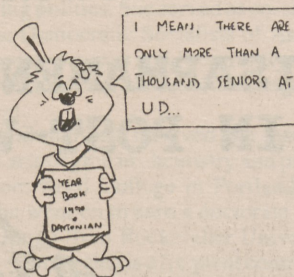 I MEAN, THERE ARE
ONLY MORE THAN A
THOUSAND SENIORS AT
UD...
YEAR
BOOK
1970
DAYTONIAN